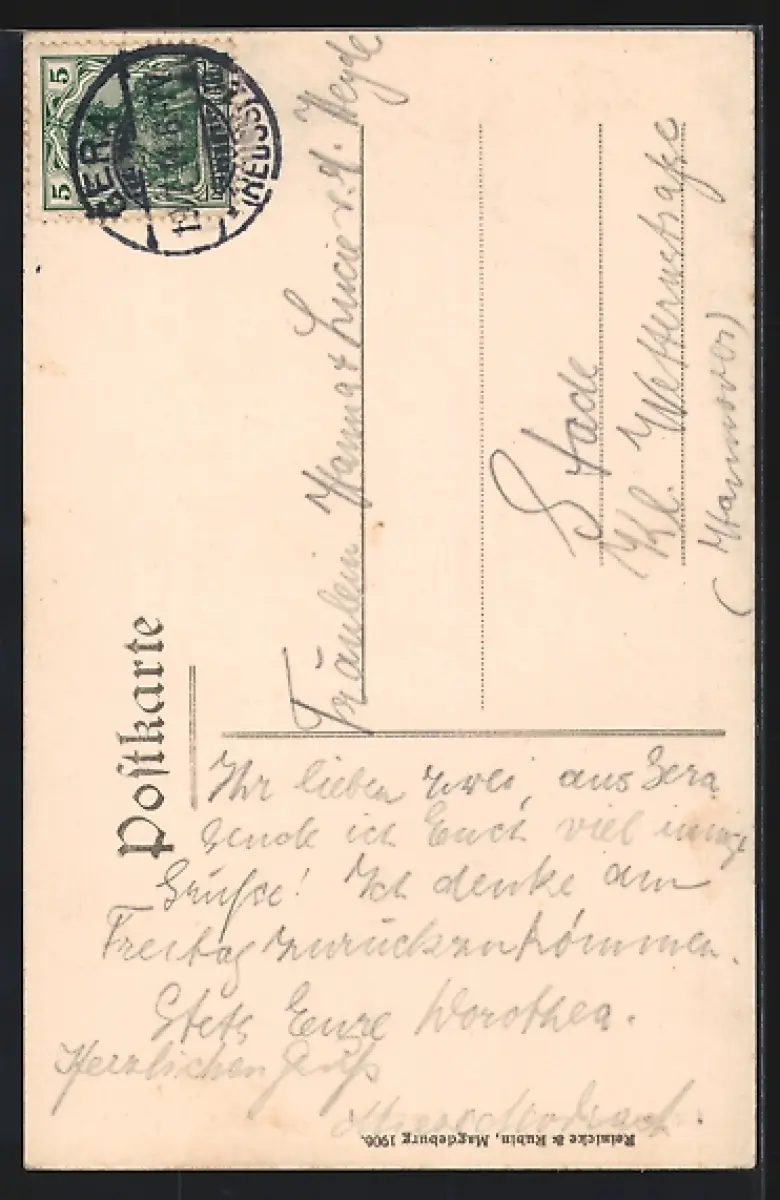 Postkarte
5
5
GERA
(REUSS)
Fräulein Hanna & Lucie v. d. Heyde
Stade
Kl. Wetternstraße
(Hannover)
Ihr lieben zwei, aus Gera
sende ich Euch viel innige
Grüße! Ich denke am
Freitag zurückzukommen.
Stets Eure Dorothea.
Herzlichen Gruß
Reinicke & Rubin, Magdeburg 1906.